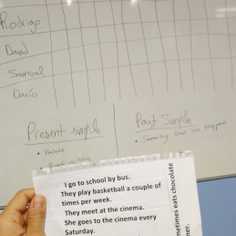 Rodrigo
David
Samuel
Present simple
Past Simple
I go to school by bus.
They play basketball a couple of
times per week.
They meet at the cinema.
She goes to the cinema every
Saturday.
eats chocolate